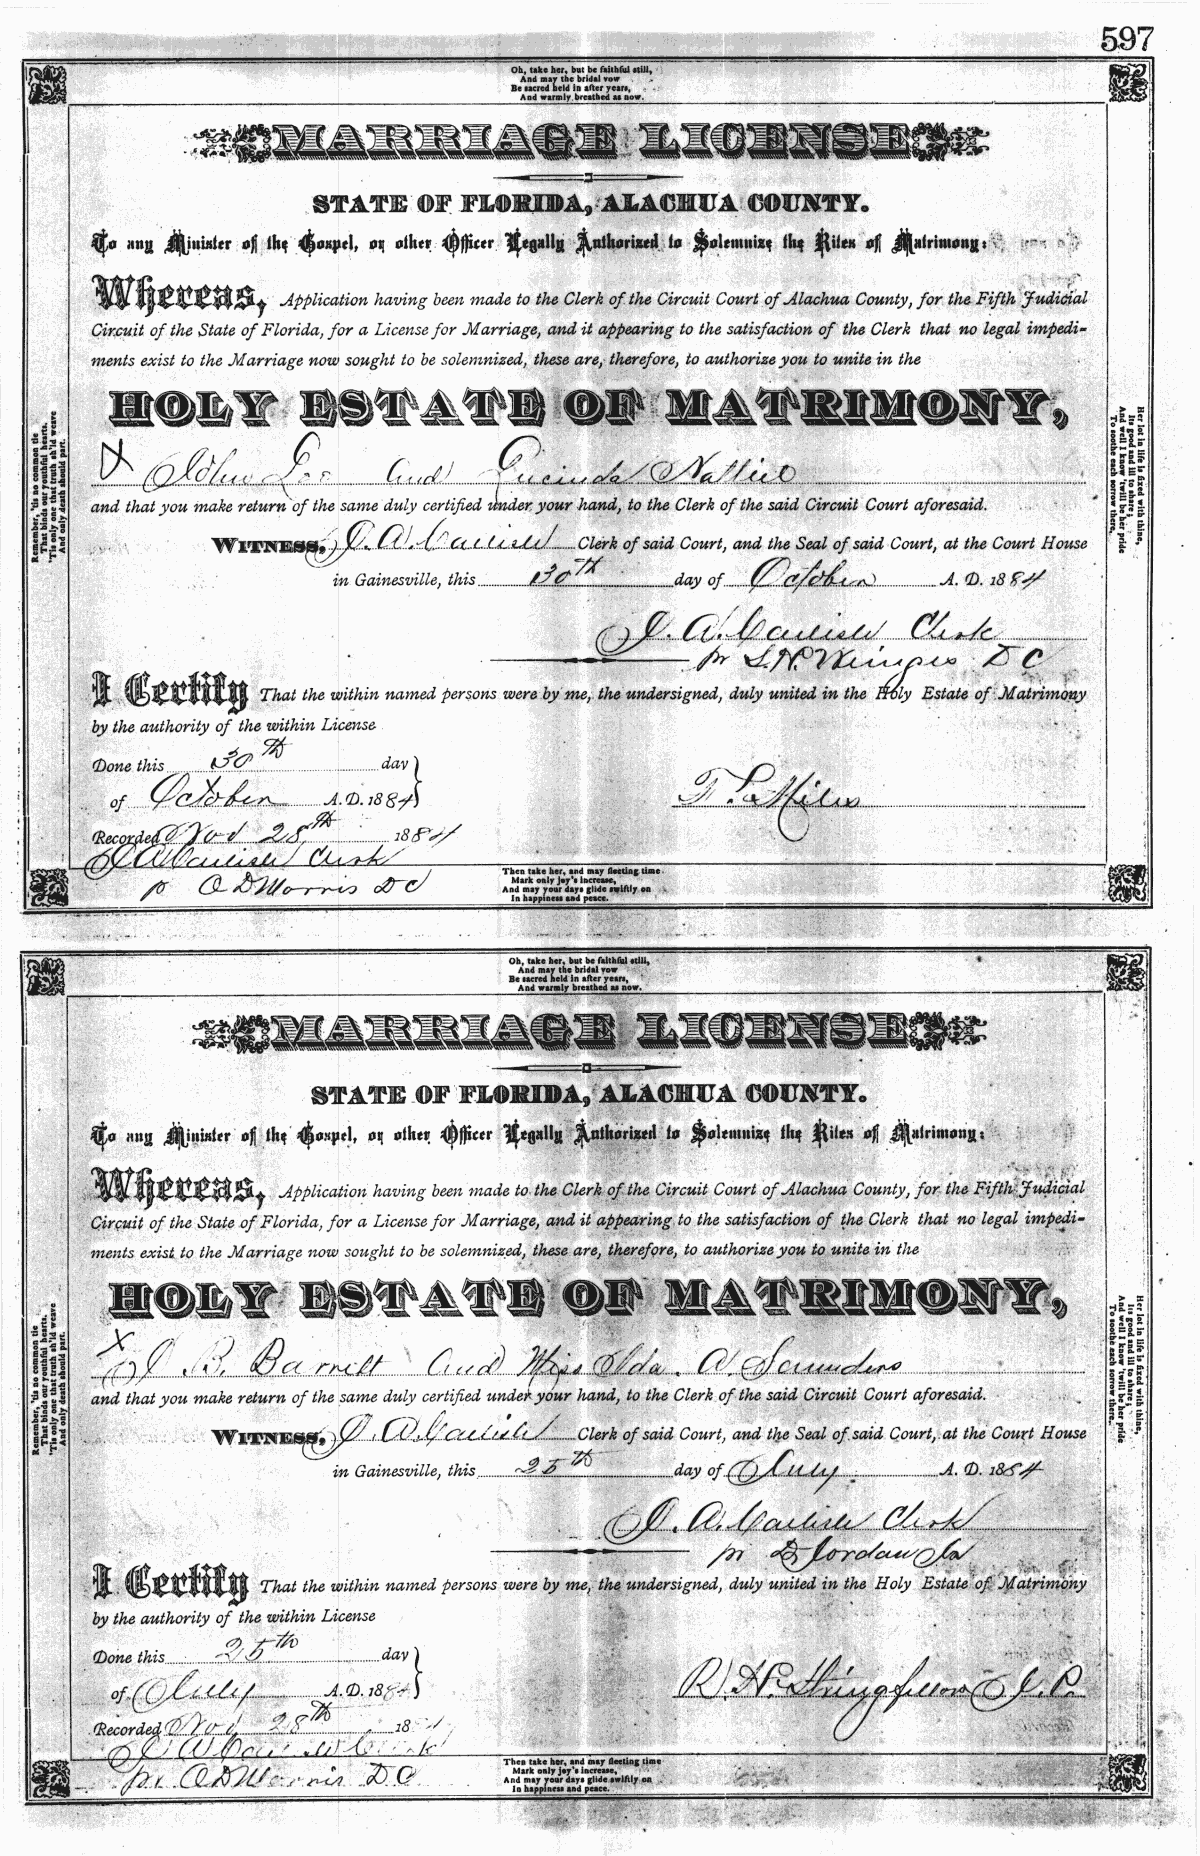 597
Oh, take her, but be faithful still,
And may the bridal vow
Be sacred held in after years,
And warmly breathed as now.
MARRIAGE LICENSE
STATE OF FLORIDA, ALACHUA COUNTY.
To any Minister of the Gospel, or other Officer Legally Authorized to Solemnize the Rites of Matrimony:
Whereas, Application having been made to the Clerk of the Circuit Court of Alachua County, for the Fifth Judicial
Circuit of the State of Florida, for a License for Marriage, and it appearing to the satisfaction of the Clerk that no legal impedi-
ments exist to the Marriage now sought to be solemnized, these are, therefore, to authorize you to unite in the
HOLY ESTATE OF MATRIMONY,
X John Lee and Lucinda Nattiel
and that you make return of the same duly certified under your hand, to the Clerk of the said Circuit Court aforesaid.
WITNESS, J. A. Carlisle Clerk of said Court, and the Seal of said Court, at the Court House
in Gainesville, this 30th day of October A. D. 1884
J. A. Carlisle Clerk
pr S. H. Wienges D C
I Certify That the within named persons were by me, the undersigned, duly united in the Holy Estate of Matrimony
by the authority of the within License
Done this 30th day
of October A. D. 1884
F. S. Miles
Recorded Nov 28th 1884
J A Carlisle Clerk
p O D Morris D C
Remember, 'tis no common tie
That binds our youthful hearts,
'Tis only one that truth sh'ld weave
And only death should part.
Her lot in life is fixed with thine,
Its good and ill to share;
And well I know 'twill be her pride
To soothe each sorrow there.
Then take her, and may fleeting time
Mark only joy's increase,
And may your days glide swiftly on
In happiness and peace.
Oh, take her, but be faithful still,
And may the bridal vow
Be sacred held in after years,
And warmly breathed as now.
MARRIAGE LICENSE
STATE OF FLORIDA, ALACHUA COUNTY.
To any Minister of the Gospel, or other Officer Legally Authorized to Solemnize the Rites of Matrimony:
Whereas, Application having been made to the Clerk of the Circuit Court of Alachua County, for the Fifth Judicial
Circuit of the State of Florida, for a License for Marriage, and it appearing to the satisfaction of the Clerk that no legal impedi-
ments exist to the Marriage now sought to be solemnized, these are, therefore, to authorize you to unite in the
HOLY ESTATE OF MATRIMONY,
X J B. Barnett and Miss Ida. A. Saunders
and that you make return of the same duly certified under your hand, to the Clerk of the said Circuit Court aforesaid.
WITNESS, J. A. Carlisle Clerk of said Court, and the Seal of said Court, at the Court House
in Gainesville, this 25th day of July A. D. 1884
J. A. Carlisle Clerk
pr D. Jordan Jr
I Certify That the within named persons were by me, the undersigned, duly united in the Holy Estate of Matrimony
by the authority of the within License
Done this 25th day
of July A. D. 1884
R. H. Stringfellow J. P.
Recorded Nov 28th 1884
J A Carlisle Clerk
pr. O D Morris D C
Remember, 'tis no common tie
That binds our youthful hearts,
'Tis only one that truth sh'ld weave
And only death should part.
Her lot in life is fixed with thine,
Its good and ill to share;
And well I know 'twill be her pride
To soothe each sorrow there.
Then take her, and may fleeting time
Mark only joy's increase,
And may your days glide swiftly on
In happiness and peace.